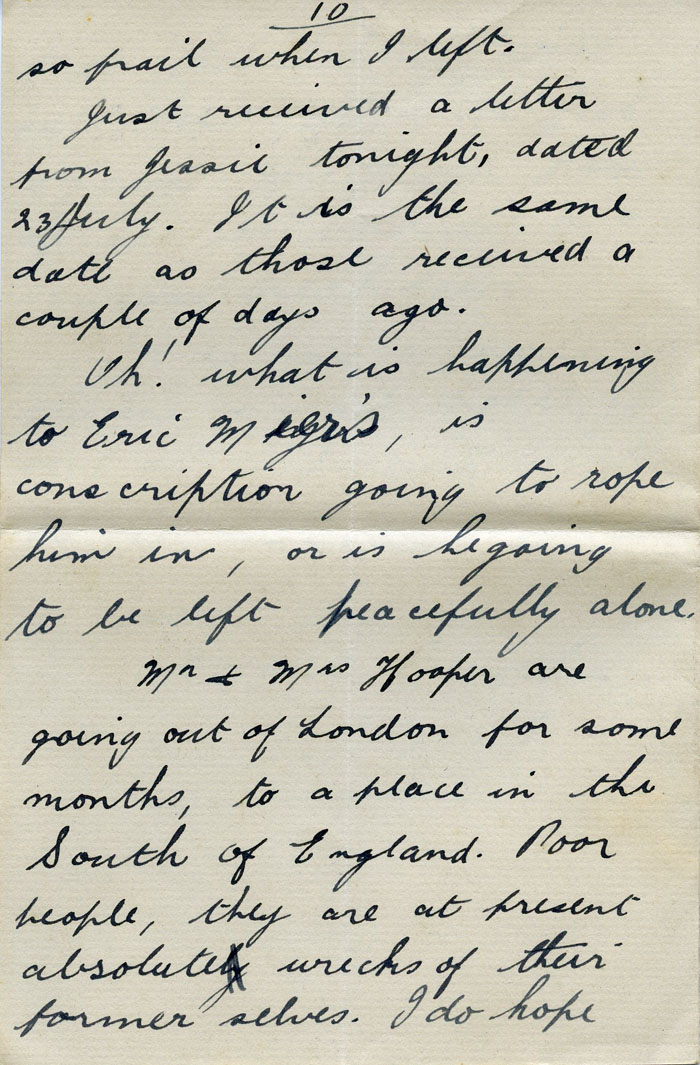 10
so frail when I left.
Just received a letter
from Jessie tonight, dated
23 July. It is the same
date as those received a
couple of days ago.
Oh! what is happening
to Eric, is
conscription going to rope
him in, or is he going
to be left peacefully alone.
Mr & Mrs Hooper are
going out of London for some
months, to a place in the
South of England. Poor
people, they are at present
absolutely wrecks of their
former selves. I do hope